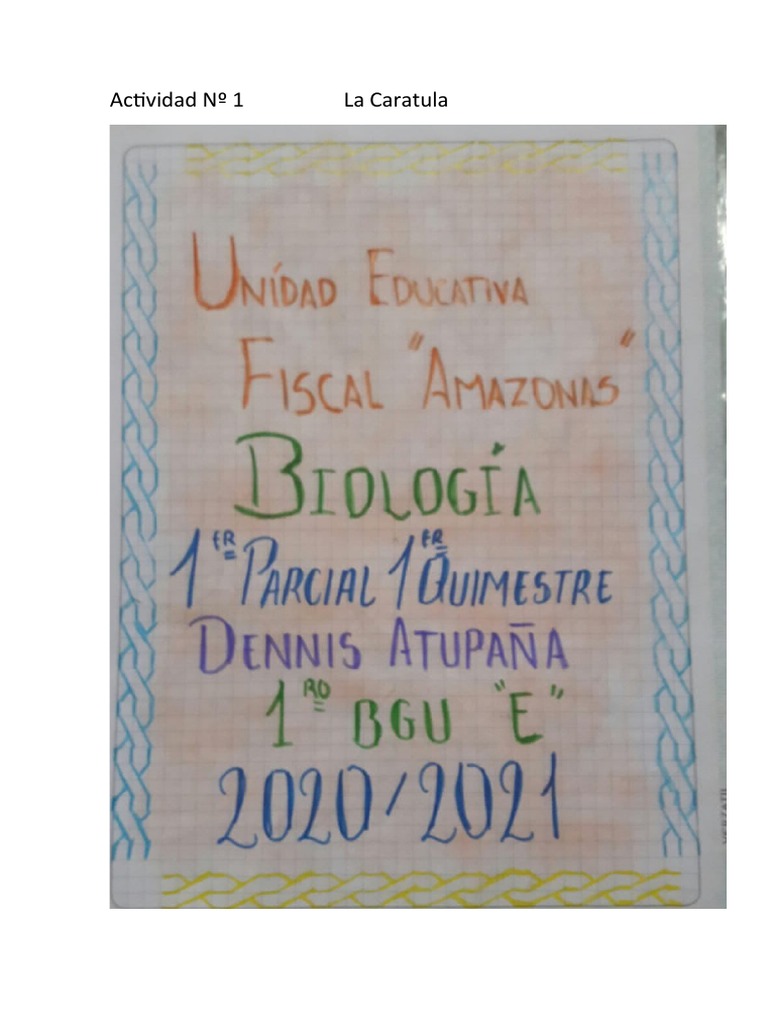 Actividad Nº 1 La Caratula
UNÍDAD EDUCATIVA
FISCAL "AMAZONAS"
BIOLOGÍA
1ER PARCIAL 1ER QUIMESTRE
DENNIS ATUPAÑA
1RO BGU "E"
2020/2021